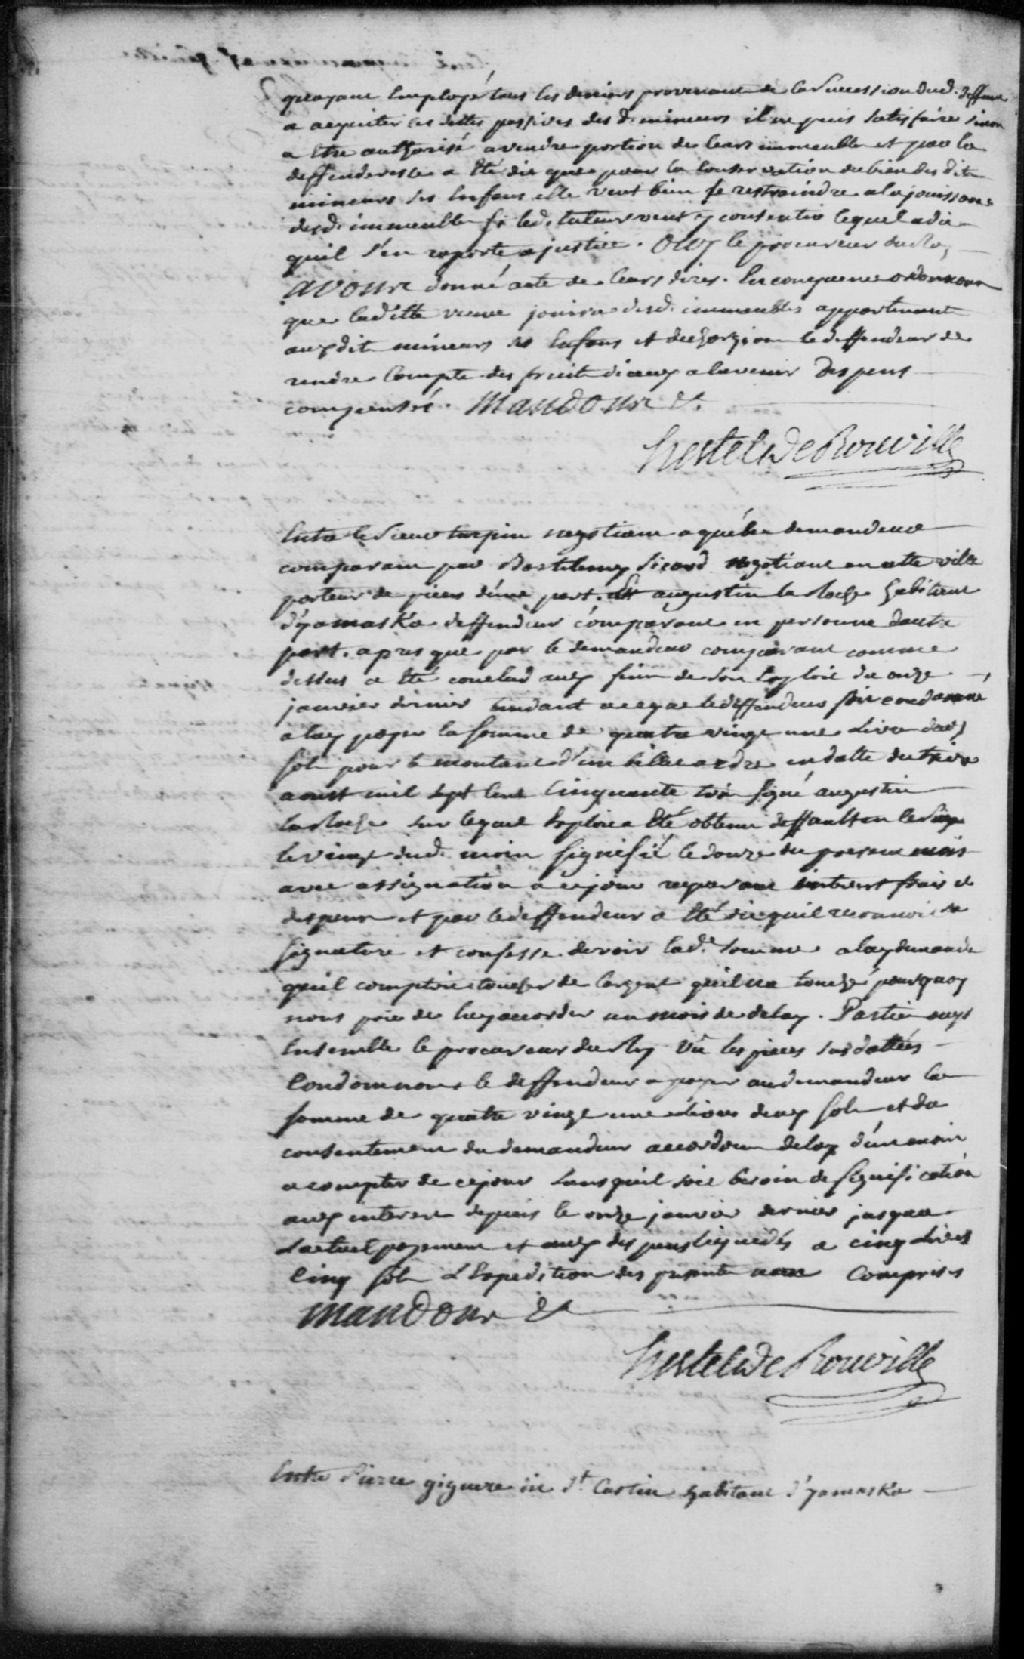 quayant Employé tous les deniers provenant de la Succession dud. deffunt
a acquiter les dettes passives des d. mineurs il ne peut satisfaire sinon
a Etre authorisé a vendre portion de leurs immeubles et par la
deffenderesse a Eté dit que pour la conservation du bien des dits
mineurs ses Enfans elle veut bien se restraindre a la jouissance
desd. immeubles si led. tuteur veut y consentir lequel a dit
quil s'en raporte a justice. Ouy le procureur du Roy
avons donné acte de leurs dires. En consequence ordonnons
que laditte veuve jouira desd. immeubles appartenant
auxdit mineurs ses Enfans et dechargeons le deffendeur de
rendre Compte des fruits diceux a lavenir Depens
compensés. Mandons &a.
hertel De Rouville
Entre le Sieur turpin negotiant a québec demandeur
comparant par Barthelemy Sicard negotiant en cette ville
porteur de pieces d'une part. Et augustin la Roche habitant
d'yamaska deffendeur comparant en personne dautre
part. apres que par le demandeur comparant comme
dessus a Eté conclud aux fins de son Exploit du onze
janvier dernier tendant a ce que le deffendeur soit condamné
a luy payer la somme de quatre vingt une Livre deux
sols pour le montant d'un billet a ordre en datte du treize
aoust mil sept Cent Cinquante trois signé augustin
laroche sur lequel Exploit a Eté obtenu deffault en ce Siege
le vingt dud. mois signifié le douze du present mois
avec assignation a ce jour reparant interest frais et
depens et par le deffendeur a Eté dit quil reconnoit sa
signature et confesse devoir lad.e somme a luy demandée
quil comptoit toucher de largent quil na touché pourquoy
nous prie de luy accorder un mois de delay. Parties ouys
Ensemble le procureur du Roy Vû les pieces susdattées
Condamnons le deffendeur a payer au demandeur la
somme de quatre vingt une Livres deux sols et du
consentement du demandeur accordons delay d'un mois
a compter de ce jour sans quil soit besoin de signification
aux interest depuis le onze janvier dernier jusqua
Lactuel payement et aux depens liquidés a cinq Livres
Cinq sols L'Expedition des presente non Comprises
Mandons &a
hertel De Rouville
Entre Pierre giguere dit St Castin habitant d'yamaska